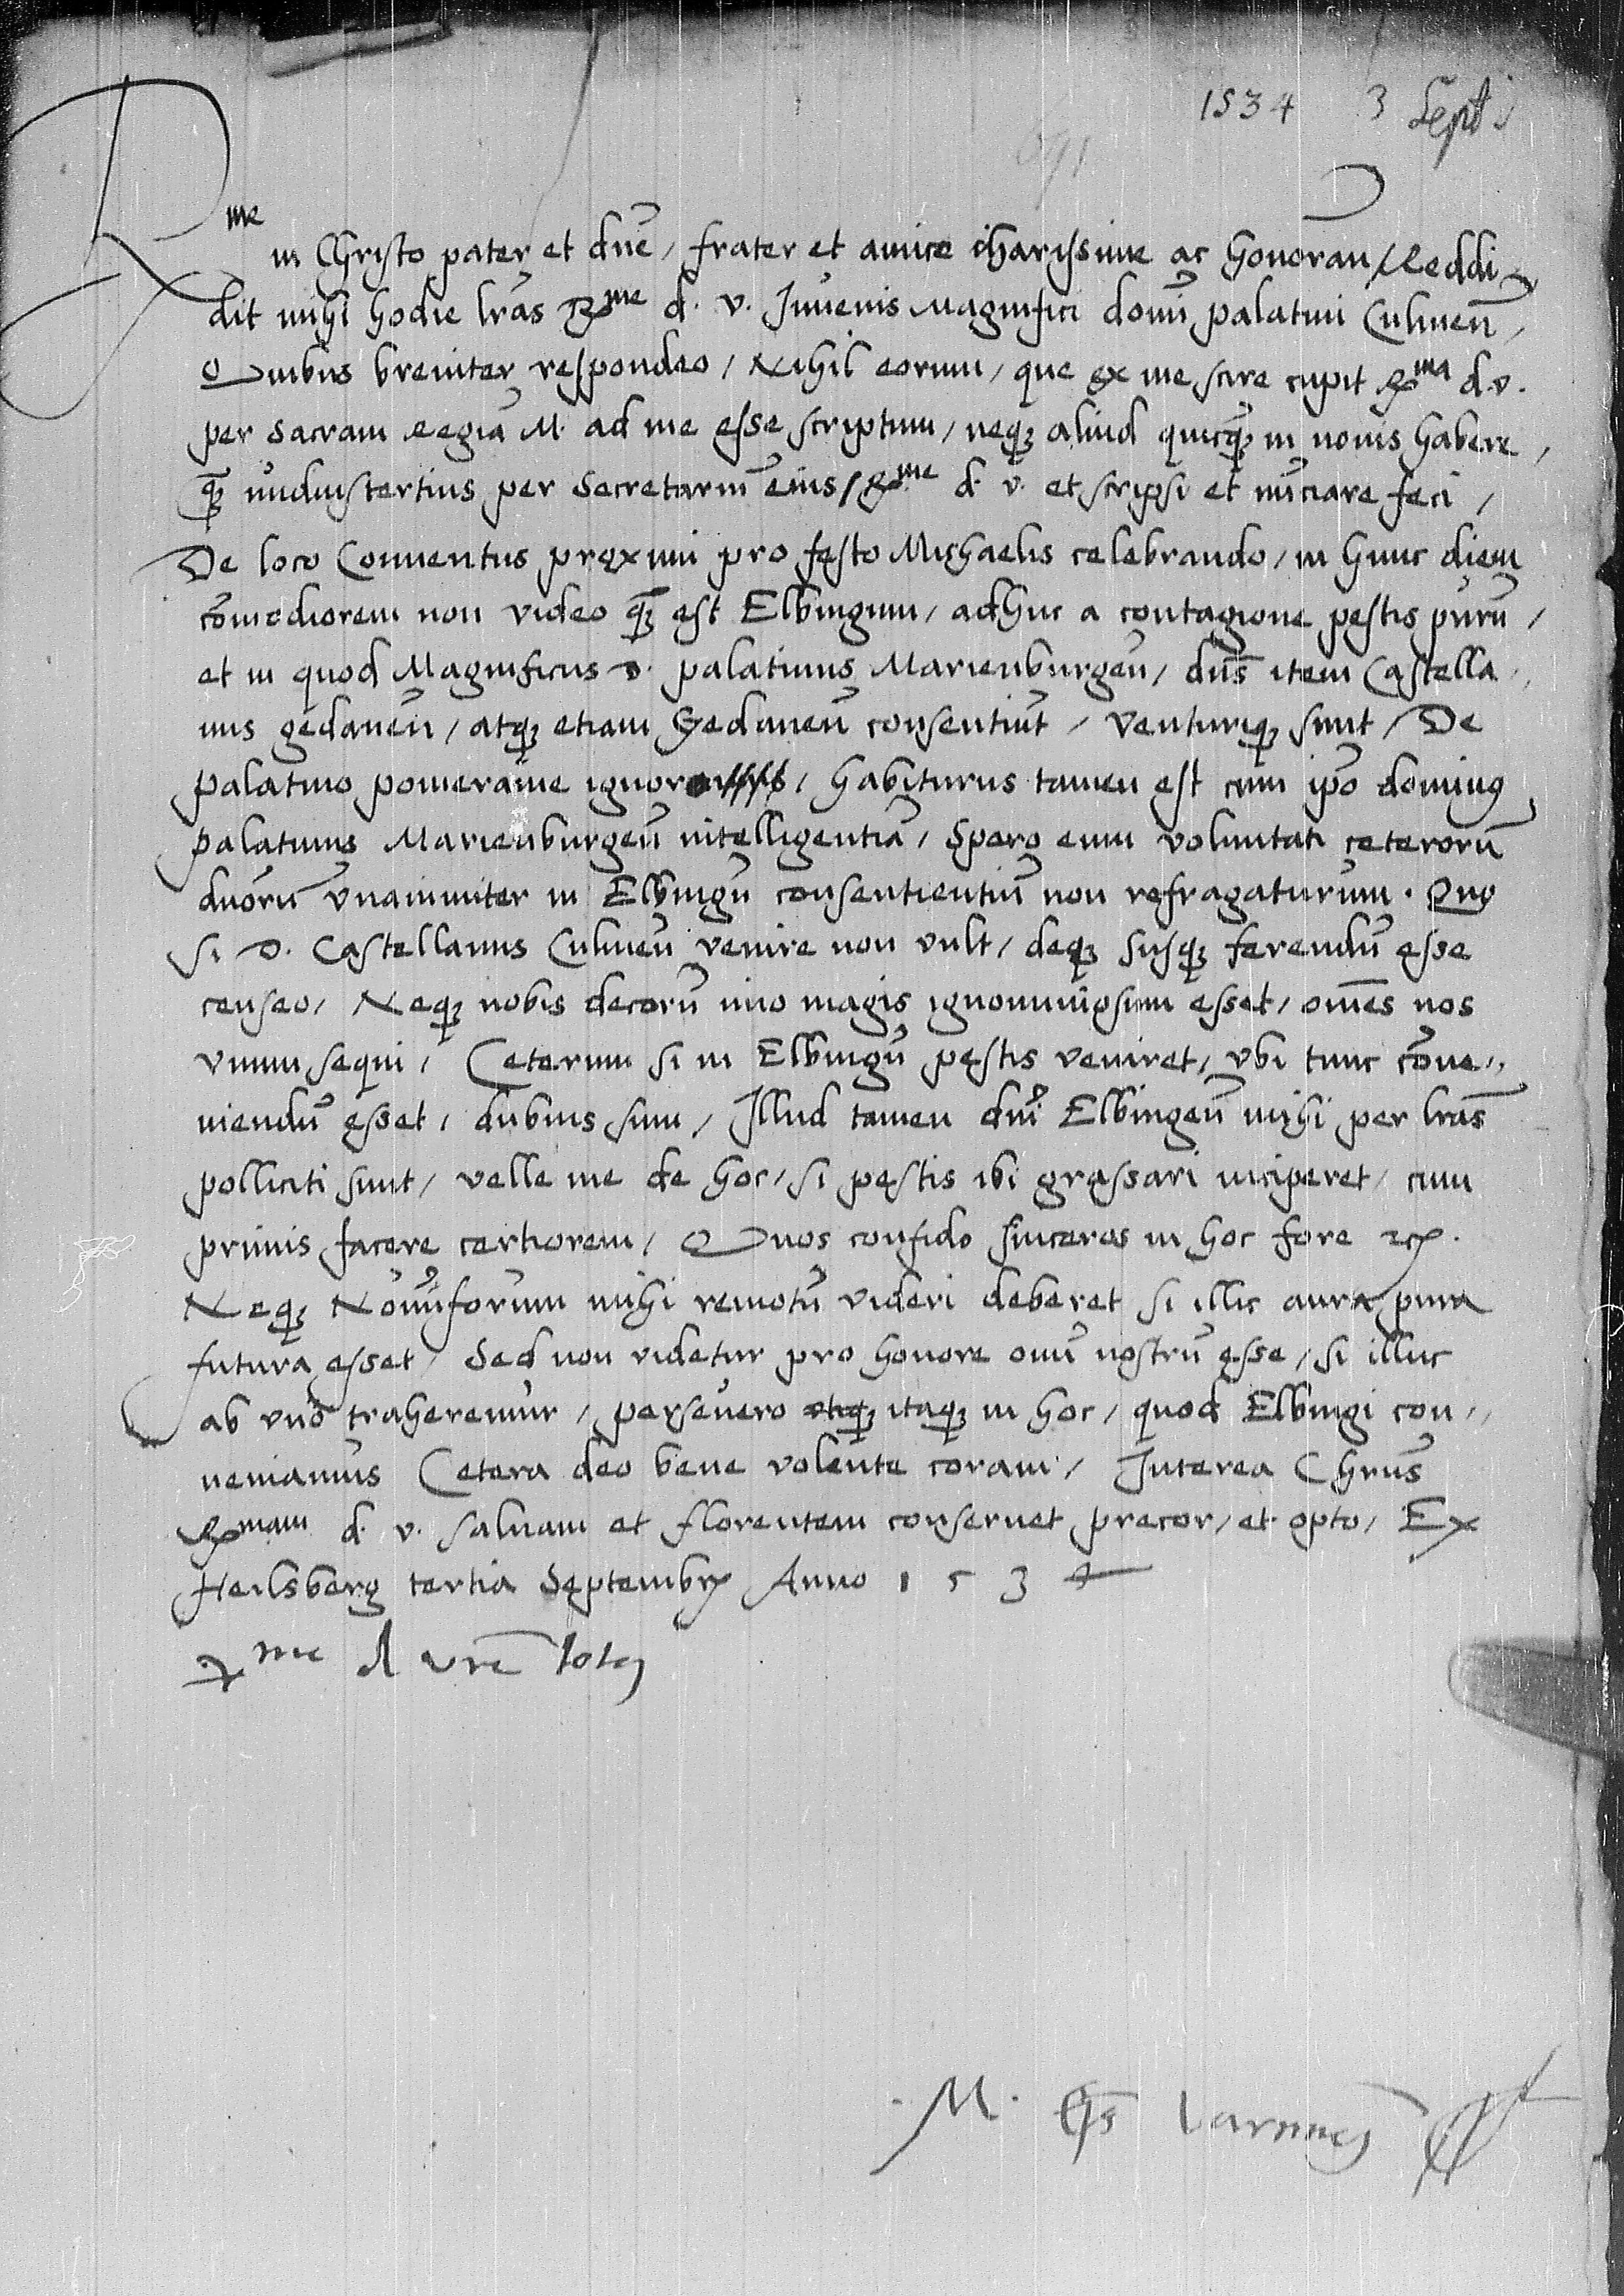 1534 3 Septis
Rme in Christo pater et dne, frater et amice charissime ac honoran, Reddi
dit mihi hodie lras Rme d. v. Juvenis Magnifici domi palatini Culmen,
Quibus breviter respondeo, Nihil eorum, que ex me scire cupit Rma d. v.
per Sacram Regia M. ad me esse scriptum, neqz aliud quicqz in novis habere,
qz nudiustertius per Secretariu eius, Rme d. v. et scripsi et nuciare feci,
De loco Conventus proximi pro festo Michaelis celebrando, in hunc diem
comodiorem non video qz est Elbingum, adhuc a contagione pestis puru,
et in quod Magnificus D. palatinus Marienburgen, dns item Castella,,
nus gedanen, atqz etiam Gedanen consentiut, venturiqz sunt, De
palatino pomeranie ignoro, habiturus tamen est cum ipo dominus
palatinus Marienburgen intelligentia, Spero eum voluntati ceteroru
duoru unanimiter in Elbingu consentientiu non refragaturum. Quo
si D. Castellanus Culmen venire non vult, deqz susqz ferendu esse
censeo, Neqz nobis decoru imo magis ignominiosum esset, omes nos
unum sequi, Ceterum si in Elbingu pestis veniret, ubi tunc conve,,
niendu esset, dubius sum, Illud tamen dni Elbingen mihi per lras
polliciti sunt, velle me de hoc, si pestis ibi grassari inciperet, cum
primis facere certiorem, Quos confido sinceros in hoc fore etc.
Neqz Novuforum mihi remotu videri deberet si illic aura pura
futura esset, Sed non videtur pro honore oium nostru esse, si illuc
ab uno traheremur, persevero utiqz itaqz in hoc, quod Elbingi con,,
veniamus Cetera deo bene volente coram, Interea Chrus
Rmam d. v. salvam et florentem conservet precor, et opto, Ex
Heilsberg tertia Septembris Anno 1534
Rme d vre totus
M. Eps Varmien